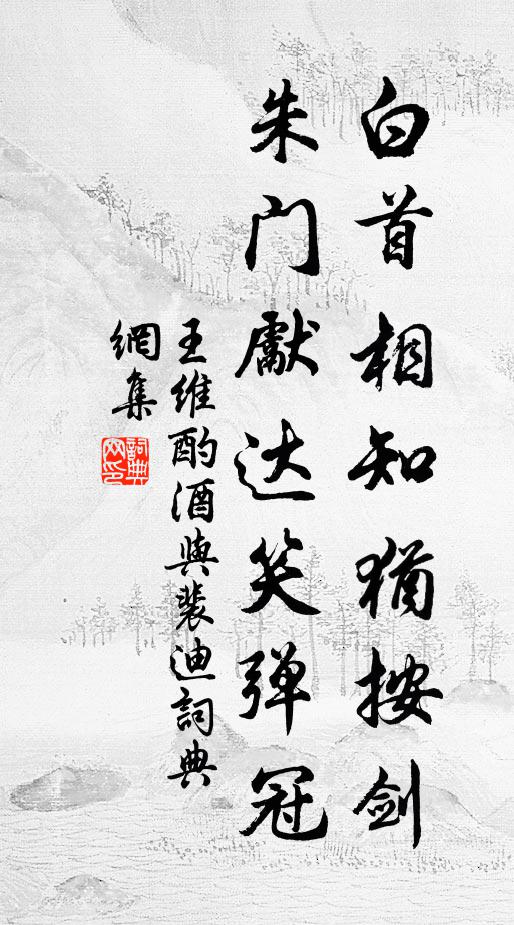 白首相知猶按剑
朱门獻达笑弹冠
王维酌酒與裴迪詞典
網集
詞典
网印